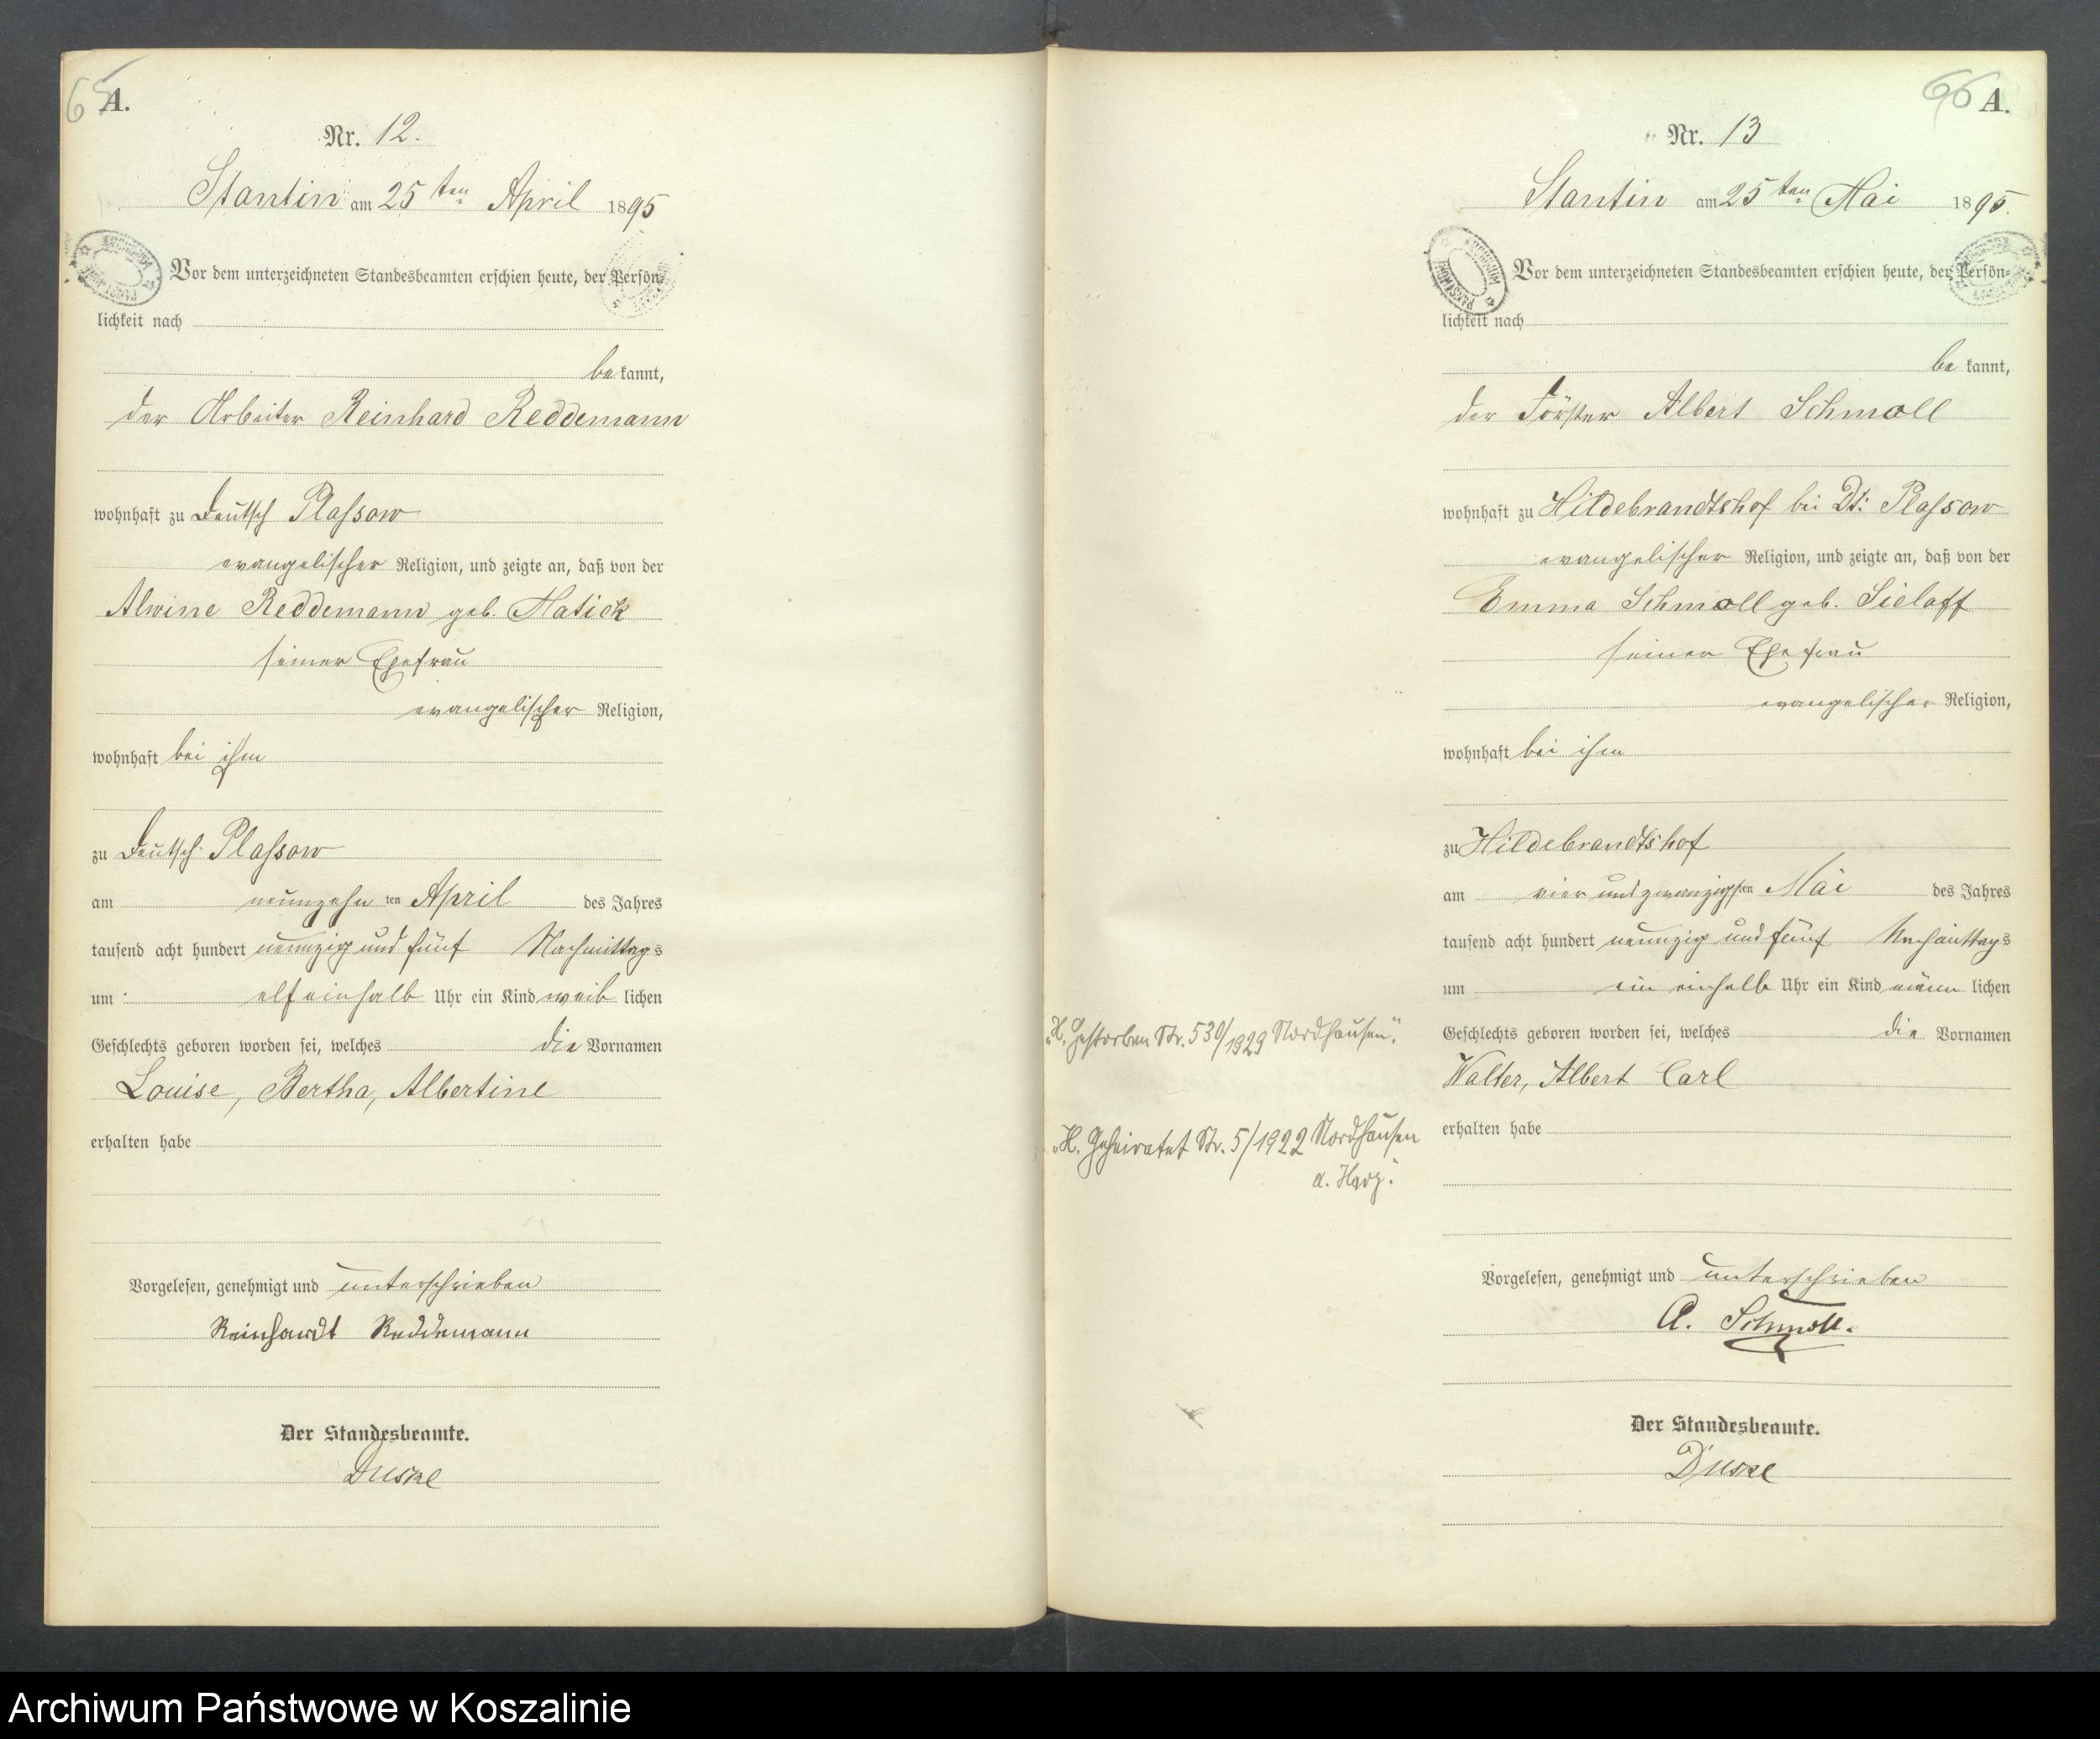 65
A.
Nr. 12.
Stantin am 25ten April 1895
Vor dem unterzeichneten Standesbeamten erschien heute, der Persön=
lichkeit nach
bekannt,
der Arbeiter Reinhard Reddemann
wohnhaft zu Deutsch Plassow
evangelischer Religion, und zeigte an, daß von der
Alwine Reddemann geb. Hatick
seiner Ehefrau
evangelischer Religion,
wohnhaft bei ihm
zu Deutsch Plassow
am neunzehnten April des Jahres
tausend acht hundert neunzig und fünf Nachmittags
um elfeinhalb Uhr ein Kind weiblichen
Geschlechts geboren worden sei, welches die Vornamen
Louise, Bertha, Albertine
erhalten habe
Vorgelesen, genehmigt und unterschrieben
Reinhardt Reddemann
Der Standesbeamte.
66
A.
Nr. 13
Stantin am 25ten Mai 1895.
Vor dem unterzeichneten Standesbeamten erschien heute, der Persön=
lichkeit nach
bekannt,
der Förster Albert Schmoll
wohnhaft zu Hildebrandtshof bei Dt: Plassow
evangelischer Religion, und zeigte an, daß von der
Emma Schmoll geb. Sieloff
seiner Ehefrau
evangelischer Religion,
wohnhaft bei ihm
zu Hildebrandtshof
am vier und zwanzigsten Mai des Jahres
tausend acht hundert neunzig und fünf Nachmittags
um ein einhalb Uhr ein Kind männlichen
Geschlechts geboren worden sei, welches die Vornamen
Walter, Albert Carl
erhalten habe
Vorgelesen, genehmigt und unterschrieben
A. Schmoll.
Der Standesbeamte.
„H. Gestorben Nr. 530/1929 Nordhausen."
„H. Geheiratet Nr. 5/1922 Nordhausen
a. Harz."
Archiwum Państwowe w Koszalinie